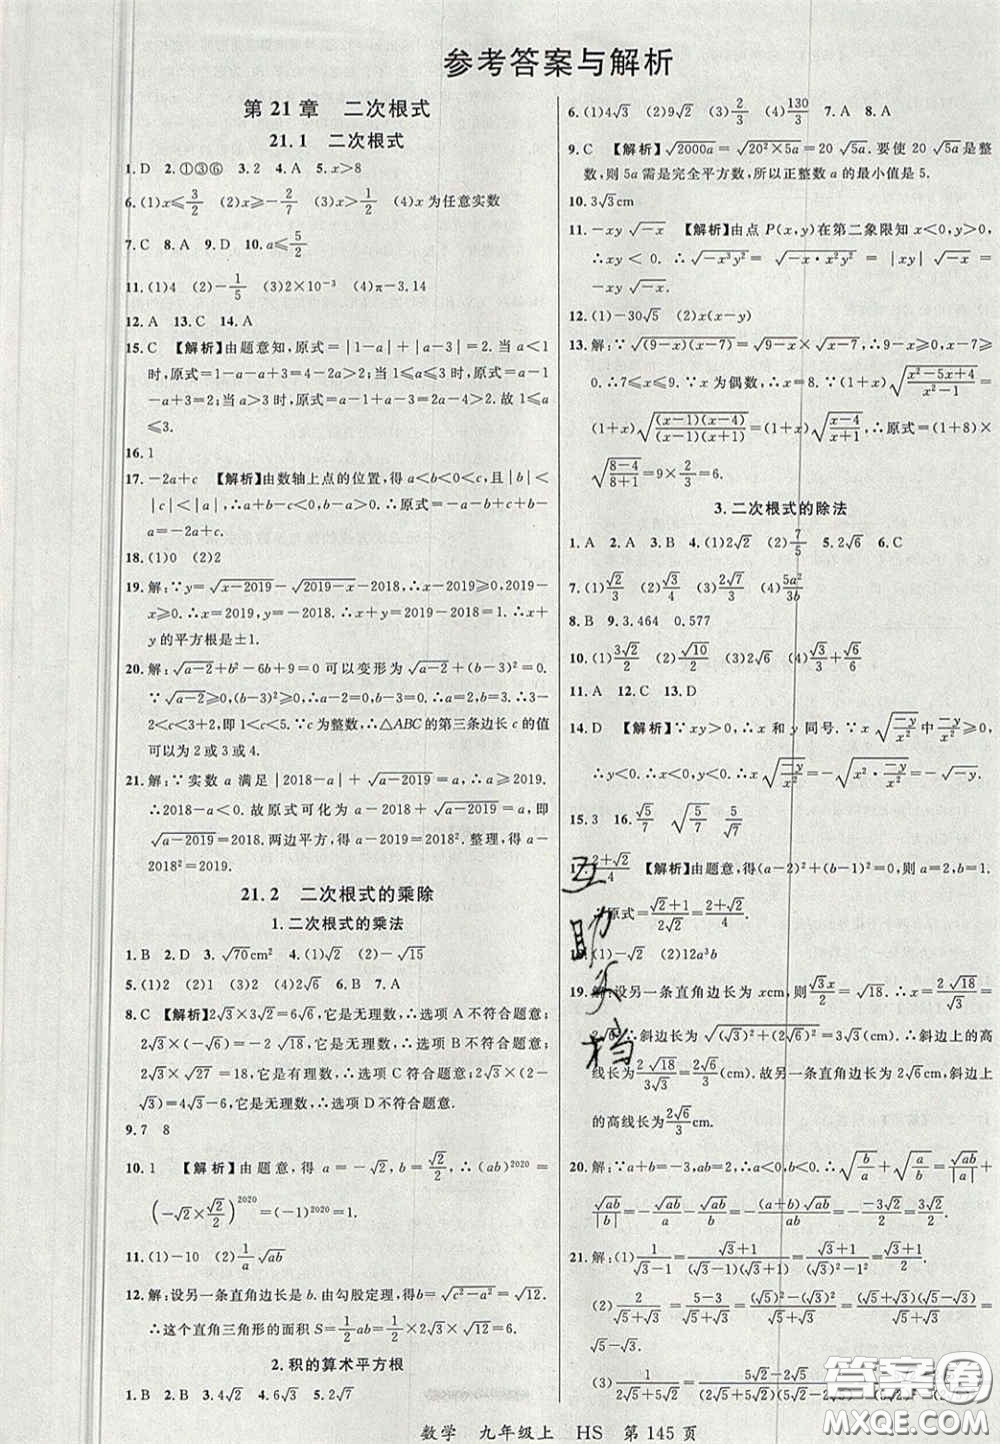 参考答案与解析
第 21 章 二次根式
21.1 二次根式
1. D 2. ①③⑥ 3. 2 4. A 5. x>8
6. (1)x≤3/2 (2)x≥-2/7 (3)x>1/2 (4)x 为任意实数
7. C 8. A 9. D 10. a≤5/2
11. (1)4 (2)-1/5 (3)2×10⁻³ (4)π-3.14
12. A 13. C 14. A
15. C 【解析】由题意知，原式=|1-a|+|a-3|=2. 当 a<1
时，原式=1-a+3-a=4-2a>2；当 1≤a≤3 时，原式=a-1
-a+3=2；当 a>3 时，原式=a-1+a-3=2a-4>2. 故 1≤a
≤3.
16. 1
17. -2a+c 【解析】由数轴上点的位置，得 a<b<0<c，且|b|<
|c|<|a|，∴a+b-c<0，b-a>0，∴原式=-a-b+c+b-a
=-2a+c.
18. (1)0 (2)2
19. 解：∵y=√(x-2019)-√(2019-x)-2018，∴x-2019≥0，2019-
x≥0. ∴x=2019，y=-2018. ∴x+y=2019-2018=1. ∴x+
y 的平方根是±1.
20. 解：√(a-2)+b²-6b+9=0 可以变形为√(a-2)+(b-3)²=0.
∵√(a-2)≥0，(b-3)²≥0，∴a-2=0，b-3=0，∴a=2，b=3. ∴3-
2<c<3+2，即 1<c<5. ∵c 为整数，∴△ABC 的第三条边长 c 的值
可以为 2 或 3 或 4.
21. 解：∵实数 a 满足|2018-a|+√(a-2019)=a，∴a≥2019.
∴2018-a<0. 故原式可化为 a-2018+√(a-2019)=a，即
√(a-2019)=2018. 两边平方，得 a-2019=2018². 整理，得 a-
2018²=2019.
21.2 二次根式的乘除
1. 二次根式的乘法
1. B 2. D 3. √70 cm² 4. (1)√2 (2)-√15
5. (1)2 (2)1 6. B 7. A
8. C 【解析】2√3×3√2=6√6，它是无理数，∴选项 A 不符合题意；
2√3×(-√6)=-2√18，它是无理数，∴选项 B 不符合题意；
2√3×√27=18，它是有理数，∴选项 C 符合题意；2√3×(2-
√3)=4√3-6，它是无理数，∴选项 D 不符合题意.
9. 7 8
10. 1 【解析】由题意，得 a=-√2，b=√2/2，∴(ab)²⁰²⁰=
(-√2×√2/2)²⁰²⁰=(-1)²⁰²⁰=1.
11. (1)-10 (2)1/a √ab
12. 解：设另一条直角边长是 b. 由勾股定理，得 b=√(c²-a²)=√12，
∴这个直角三角形的面积 S=1/2 ab=1/2×2√3×√12=6.
2. 积的算术平方根
1. B 2. B 3. 4√2 4. 6√2 5. 2√7
6. (1)4√3 (2)9√2 (3)2/3 (4)130/3 7. A 8. A
9. C 【解析】√2000a=√(20²×5a)=20√5a. 要使 20√5a 是整
数，则 5a 需是完全平方数，所以正整数 a 的最小值是 5.
10. 3√3 cm
11. -xy√-x 【解析】由点 P(x，y)在第二象限知 x<0，y>0，
∴xy<0. ∴√(-x³y²)=√(-x·x²y²)=|xy|√-x=
-xy√-x.
12. (1)-30√5 (2)x(x-y)
13. 解：∵√((9-x)(x-7))=√(9-x)×√(x-7)，∴9-x≥0，x-7≥
0. ∴7≤x≤9. ∵x 为偶数，∴x=8. ∵(1+x)√((x²-5x+4)/(x²-1))=
(1+x)√((x-1)(x-4)/((x-1)(x+1)))=(1+x)√((x-4)/(x+1))，∴原式=(1+8)×
√((8-4)/(8+1))=9×2/3=6.
3. 二次根式的除法
1. A 2. A 3. B 4. (1)2√2 (2)7/5 5. 2√6 6. C
7. (1)√2/3 (2)√3/4 (3)2√7/3 (4)5a²/3b
8. B 9. 3.464 0.577
10. (1)3√2/2 (2)√10/2 (3)2√6 (4)√3/3+√6
11. A 12. C 13. D
14. D 【解析】∵xy>0，∴x 和 y 同号. ∵x√(-y/x²)中-y/x²≥0，
∴-y>0，∴y<0，∴x<0. ∴x√(-y/x²)=-√(x²·-y/x²)=-√-y.
15. 3 16. √5/7 √(5/7) 5/√7
17. (2+√2)/4 【解析】由题意，得(a-2)²+(b-1)²=0，则 a=2，b=1.
∴原式=(√2+1)/(2√2)=(2+√2)/4.
18. (1)-√2 (2)12a³b
19. 解：设另一条直角边长为 x cm，则√3x/2=√18. ∴x=2√18/√3=
2√6. ∴斜边长为√((√3)²+(2√6)²)=3√3(cm). ∴斜边上的高
线长为2√18/3√3=2√6/3(cm). 故另一条直角边长为 2√6 cm，斜边上
的高线长为2√6/3 cm.
20. 解：∵a+b=-3，ab=2，∴a<0，b<0. ∴√(b/a)+√(a/b)=√ab/|a|+
√ab/|b|=-√ab/a-√ab/b=-(a+b)√ab/ab=-(-3√2)/2=3√2/2.
21. 解：(1)1/(√3-1)=(√3+1)/((√3-1)(√3+1))=(√3+1)/((√3)²-1²)=(√3+1)/2.
(2)2/(√5+√3)=2(√5-√3)/((√5+√3)(√5-√3))=
(3)1/(5√2+2√5)=(5√2-2√5)/((5√2+2√5)(5√2-2√5))=
互助文档
答案圈
MXQE.COM
数学 九年级上 HS 第 145 页